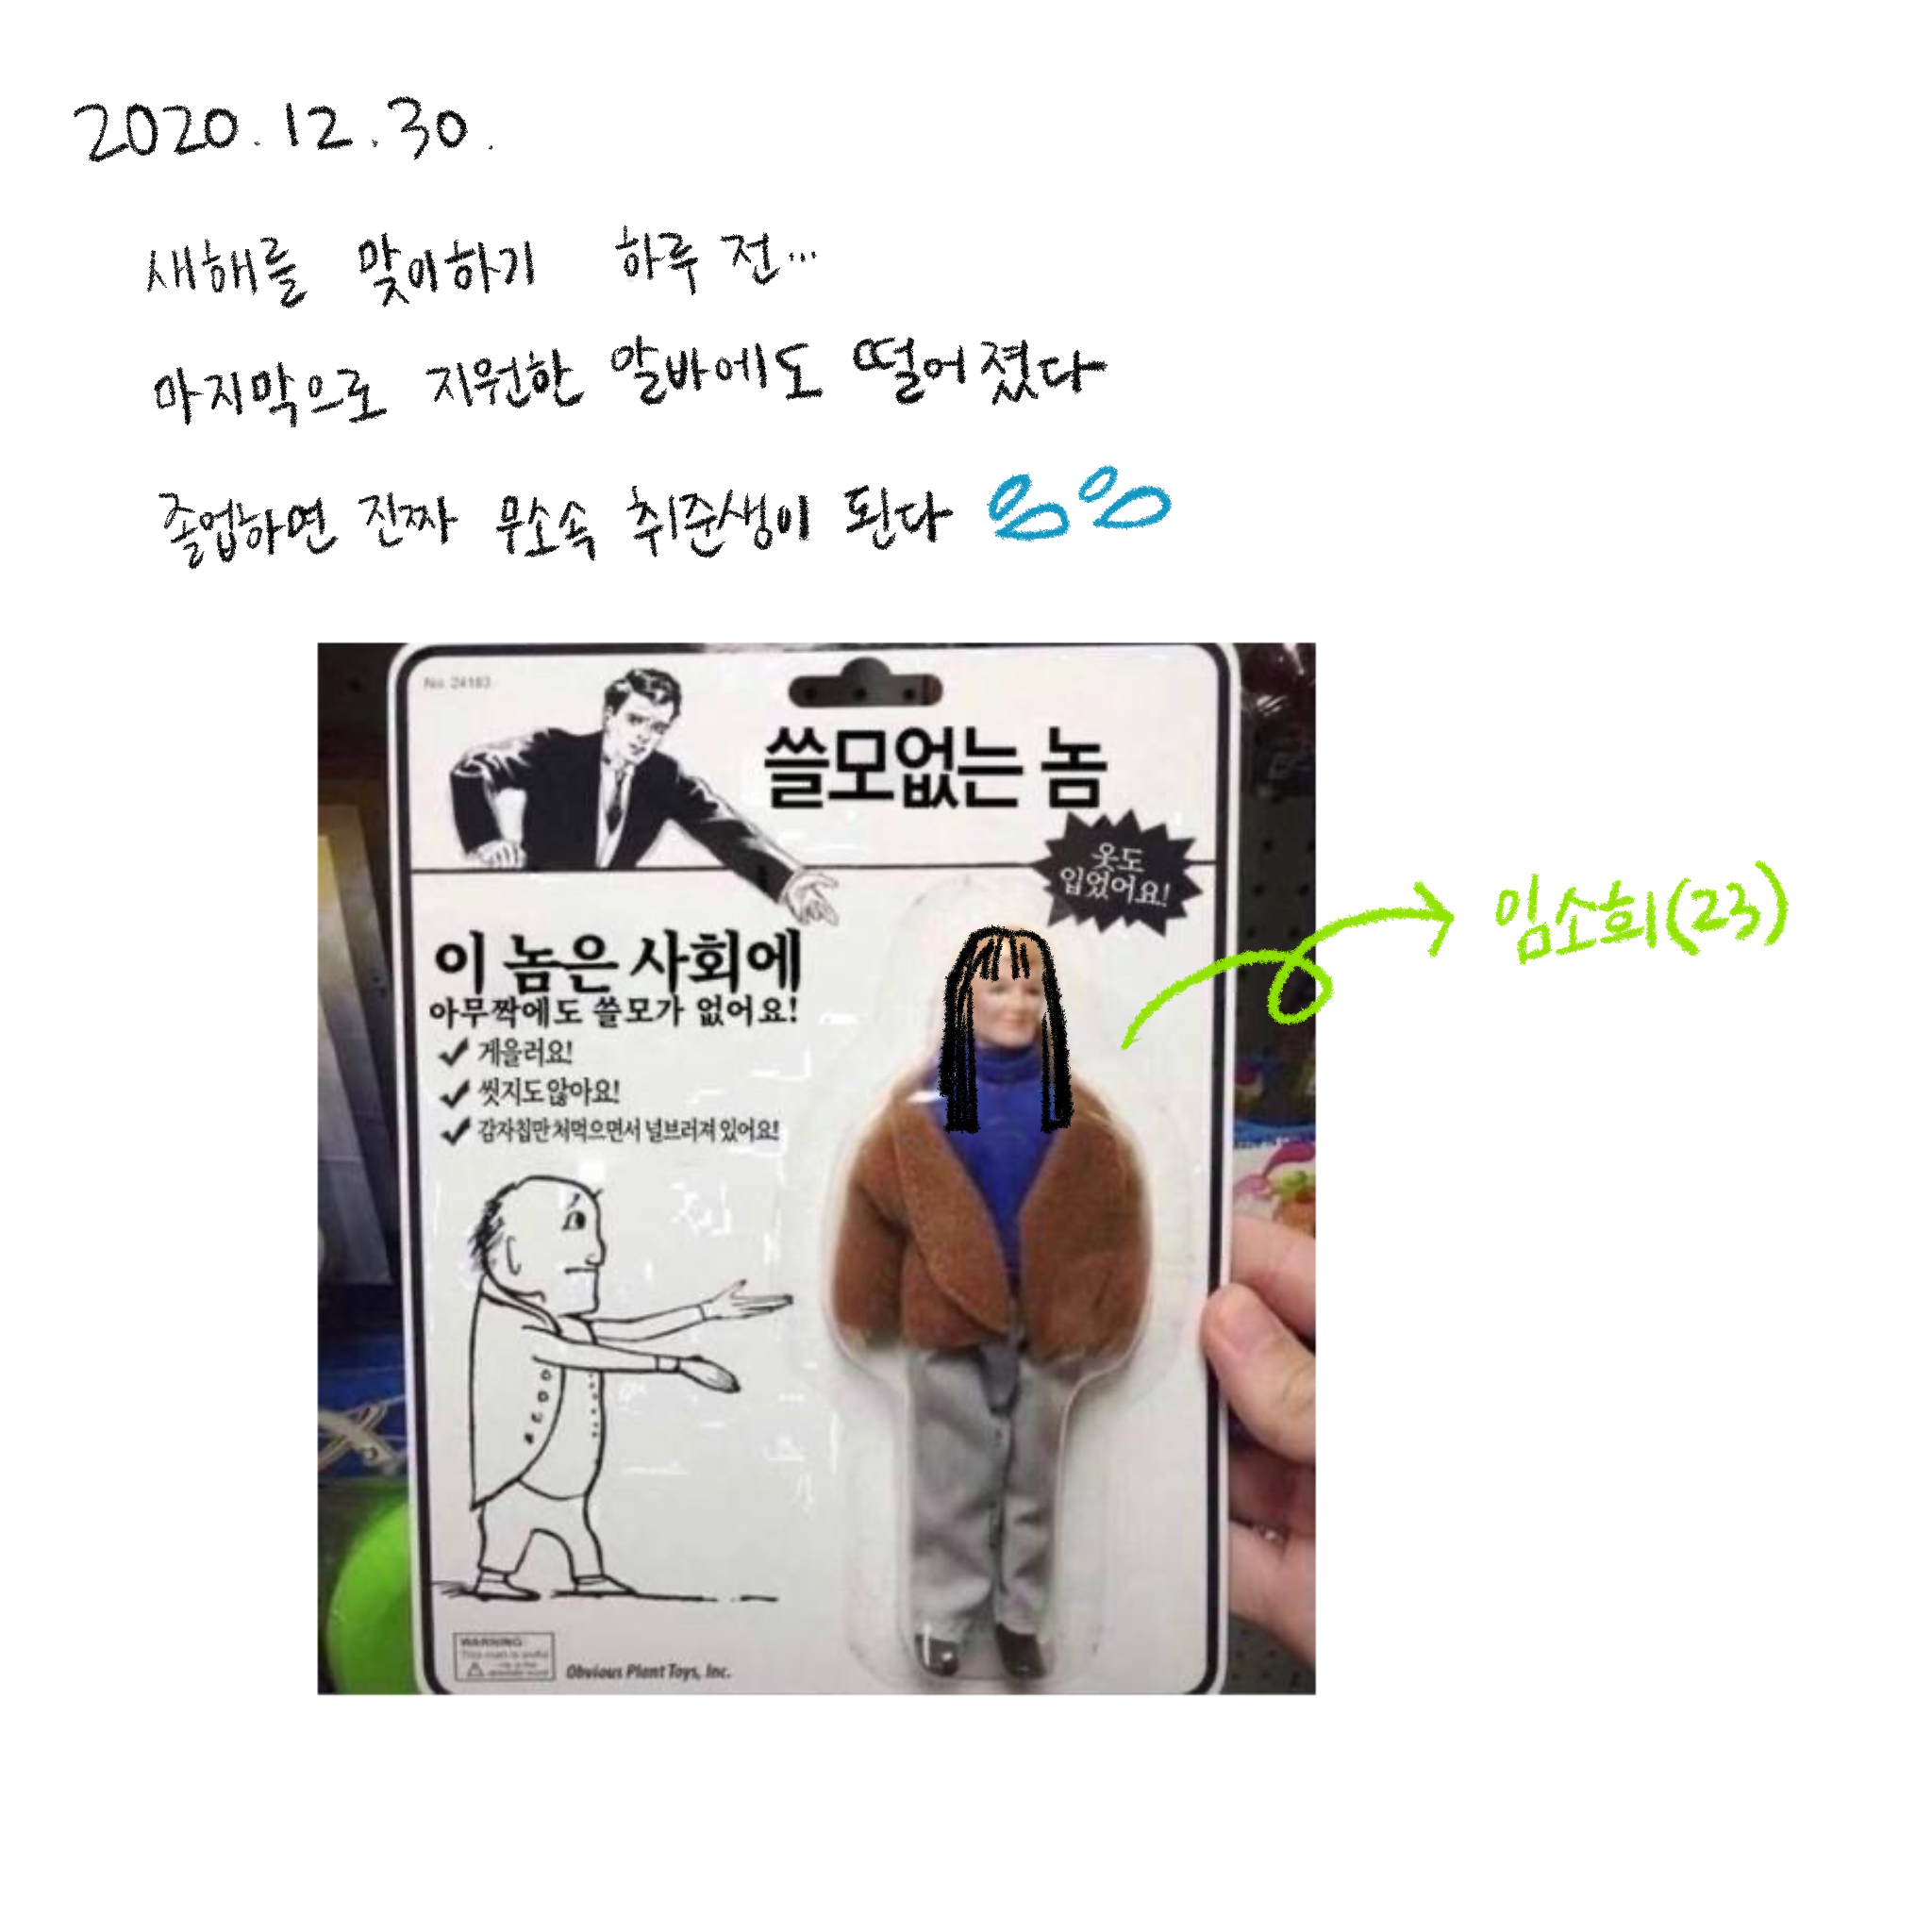 2020.12.30.
새해를 맞이하기 하루 전...
마지막으로 지원한 알바에도 떨어졌다
졸업하면 진짜 무소속 취준생이 된다
No. 24183
쓸모없는 놈
옷도
입었어요!
임소희(23)
이 놈은 사회에
아무짝에도 쓸모가 없어요!
게을러요!
씻지도않아요!
감자칩만 처먹으면서 널브러져 있어요!
WARNING:
Obvious Plant Toys, Inc.